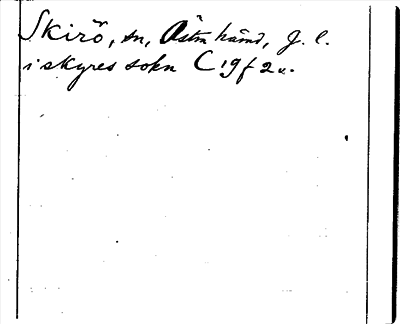 Skirö, sn, Östra härad, J. l.
i skyres sokn C 19 f 2 v.